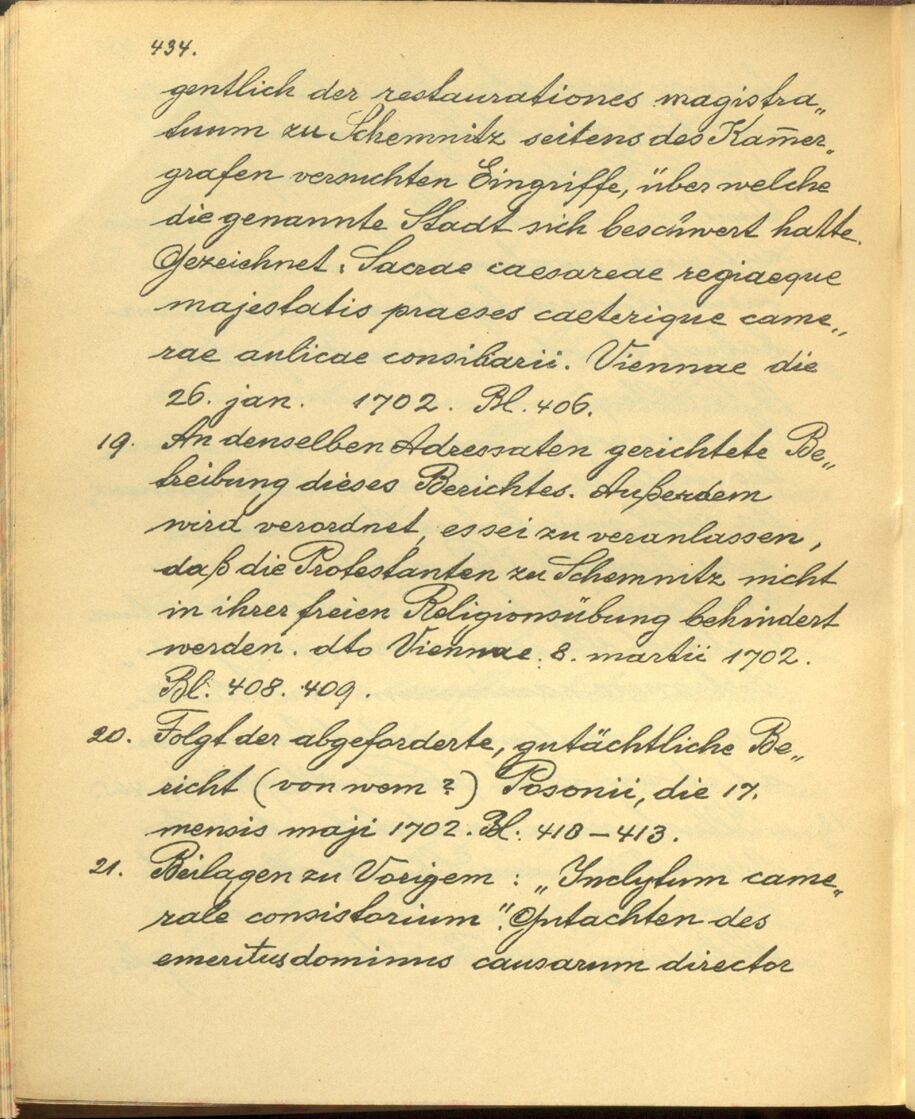 434.
gentlich der restaurationes magistra„
tuum zu Schemnitz seitens des Kam̅er„
grafen versuchten Eingriffe, über welche
die genannte Stadt sich beschwert hatte.
Gezeichnet: Sacrae caesareae regiaeque
majestatis praeses caeterique came„
rae aulicae consiliarii. Viennae die
26. jan. 1702. Bl. 406.
19. An denselben Adressaten gerichtete Be„
treibung dieses Berichtes. Außerdem
wird verordnet, es sei zu veranlassen,
daß die Protestanten zu Schemnitz nicht
in ihrer freien Religionsübung behindert
werden. dto Viennae 8. martii 1702.
Bl. 408. 409.
20. Folgt der abgeforderte, gutächtliche Be„
richt (von wem?) Posonii, die 17.
mensis maji 1702. Bl. 410–413.
21. Beilagen zu Vorigem: „Inclytum came„
rale consistorium“. Gutachten des
emeritus dominus causarum director